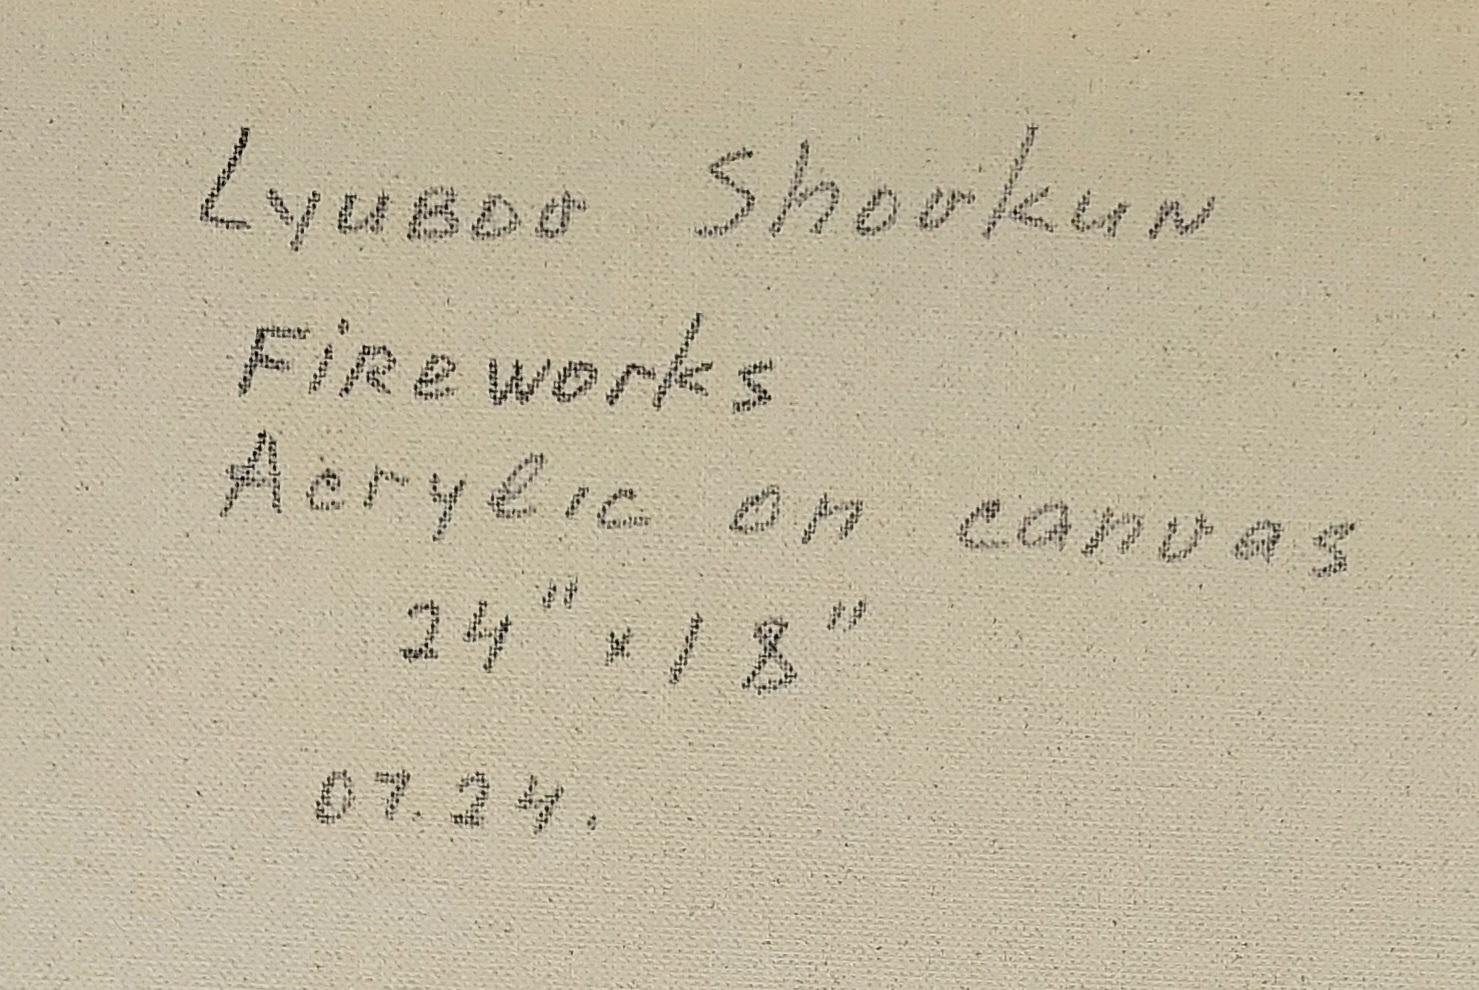 Lyuboo Shookun
Fireworks
Acrylic on canvas
24" x 18"
07.24.